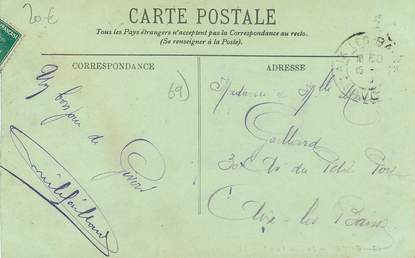 20€
CARTE POSTALE
Tous les Pays étrangers n'acceptent pas la Correspondance au recto.
(Se renseigner à la Poste).
CORRESPONDANCE
ADRESSE
Un bonjour de Givors
69
Madame et Mlle
Gaillard
du Petit Port
Aix-les-Bains